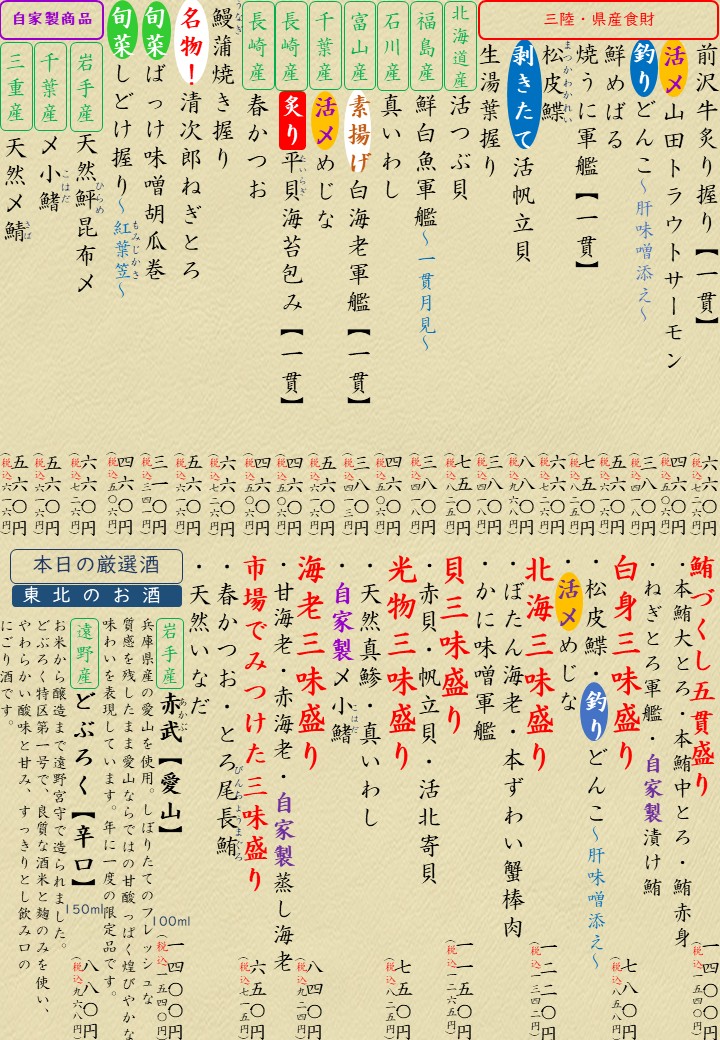 三陸・県産食財
前沢牛炙り握り【一貫】 六六〇円(税込七二六円)
活〆山田トラウトサーモン 四六〇円(税込五〇六円)
釣りどんこ～肝味噌添え～ 三八〇円(税込四一八円)
鮮めばる 五六〇円(税込六一六円)
焼うに軍艦【一貫】 七五〇円(税込八二五円)
松皮鰈(まつかわかれい) 六六〇円(税込七二六円)
剥きたて活帆立貝 八八〇円(税込九六八円)
生湯葉握り 三八〇円(税込四一八円)
北海道産 活つぶ貝 七五〇円(税込八二五円)
福島産 鮮白魚軍艦～一貫月見～ 三八〇円(税込四一八円)
石川産 真いわし 四六〇円(税込五〇六円)
富山産 素揚げ白海老軍艦【一貫】 三八〇円(税込四一八円)
千葉産 活〆めじな 五六〇円(税込六一六円)
長崎産 炙り平貝(たいらぎ)海苔包み【一貫】 四六〇円(税込五〇六円)
長崎産 春かつお 四六〇円(税込五〇六円)
鰻(うなぎ)蒲焼き握り 六六〇円(税込七二六円)
名物!清次郎ねぎとろ 五六〇円(税込六一六円)
旬菜ばっけ味噌胡瓜巻 三一〇円(税込三四一円)
旬菜しどけ握り～紅葉笠(もみじかさ)～ 四六〇円(税込五〇六円)
自家製商品
岩手産 天然鮃(ひらめ)昆布〆 六六〇円(税込七二六円)
千葉産 〆小鰭(こはだ) 五六〇円(税込六一六円)
三重産 天然〆鯖(さば) 五六〇円(税込六一六円)
鮪づくし五貫盛り
・本鮪大とろ・本鮪中とろ・鮪赤身
・ねぎとろ軍艦・自家製漬け鮪
白身三味盛り 七八〇円(税込八五八円)
・松皮鰈・釣りどんこ～肝味噌添え～
活〆めじな
北海三味盛り 一二二〇円(税込一三四二円)
・ぼたん海老・本ずわい蟹棒肉
・かに味噌軍艦
貝三味盛り 一一五〇円(税込一二六五円)
・赤貝・帆立貝・活北寄貝
光物三味盛り 七五〇円(税込八二五円)
・天然真鯵・真いわし
・自家製〆小鰭(こはだ)
海老三味盛り 八四〇円(税込九二四円)
・甘海老・赤海老・自家製蒸し海老
市場でみつけた三味盛り 六五〇円(税込七一五円)
・春かつお・とろ尾長鮪(びんちょうまぐろ)
・天然いなだ
本日の厳選酒
東北のお酒
岩手産 赤武(あかぶ)【愛山】 100ml 一四〇〇円(税込一五四〇円)
兵庫県産の愛山を使用。しぼりたてのフレッシュな
質感を残したまま愛山ならではの甘酸っぱく煌びやかな
味わいを表現しています。年に一度の限定品です。
遠野産 どぶろく【辛口】 150ml 八八〇円(税込九六八円)
お米から醸造まで遠野宮守で造られました。
どぶろく特区第一号で、良質な酒米と麹のみを使い、
やわらかい酸味と甘み、すっきりとし飲み口の
にごり酒です。